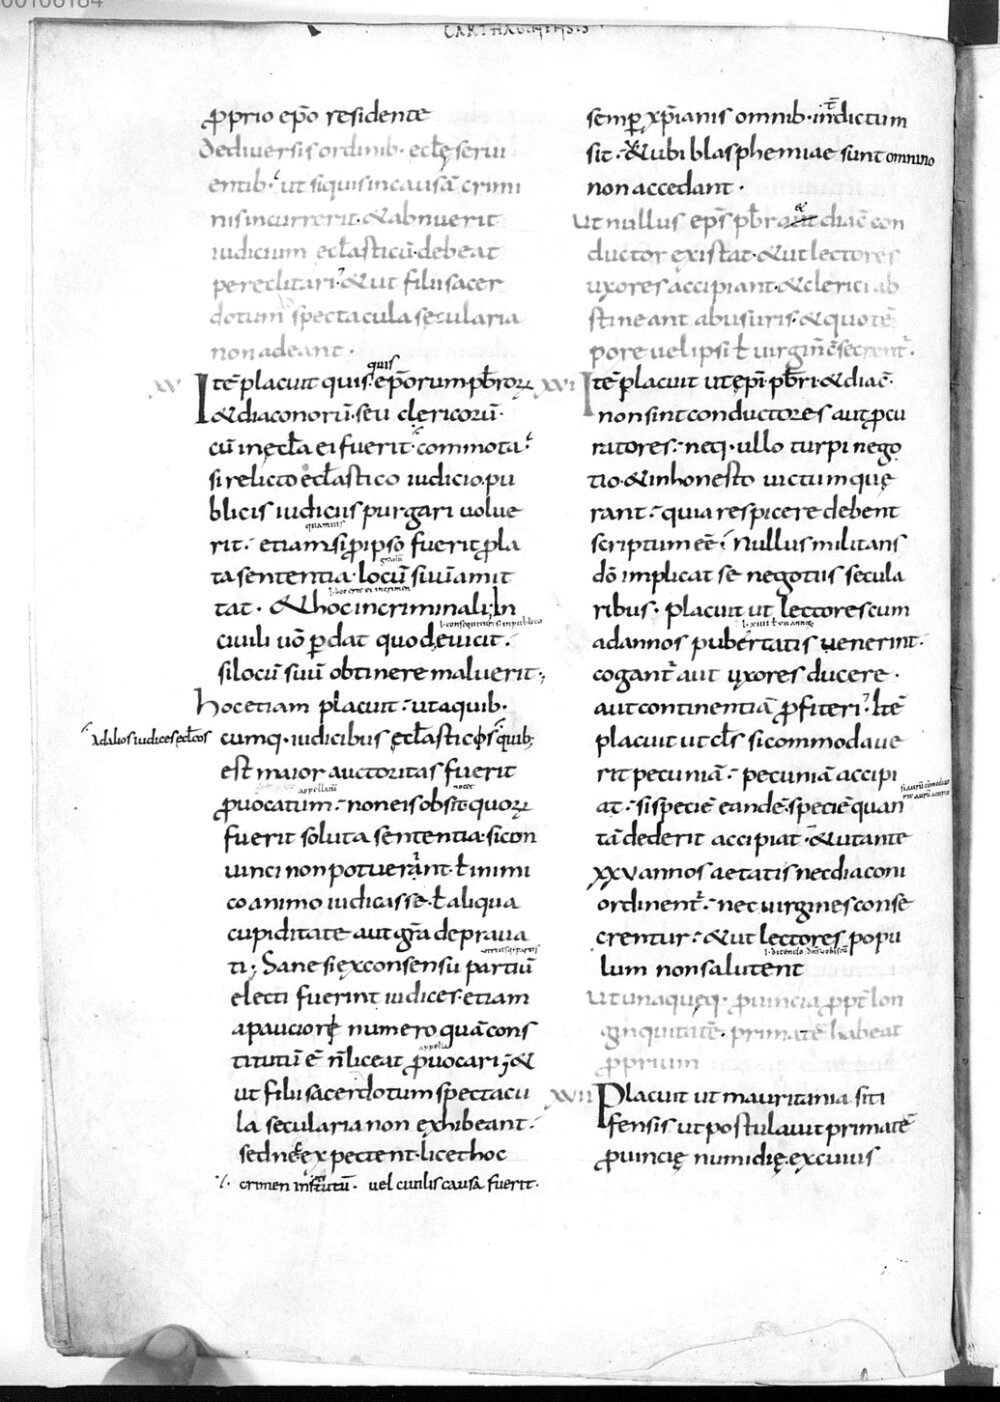 CARTHAGINENS
p̱prio ep̄o residente
dediversis ordinib· eccłę servi
entib· ut siquisincausā crimi
nisincurrerit· &abnuerit
iudicium eccłasticū· debeat
pereclitari· &ut filiisacer
dotum spectacula secularia
nonadeant·
quis
xv Itē placuit quis ep̄orum pb̄roꝝ
&diaconorū· seu clericorū·
cū inęccła ei fuerit· commota
si relicto eccłastico iudicio, pu
blicis iudiciis purgari volue
quamvis
rit· etiamsi p̱ ipso fuerit p̱la
gradū
tasententia· locū suūamit
ł hoc erit ei incrimen
tat· &hocincriminali; In
ł consequatur si in publico
civili vō p̱dat quodevicit·
silocū suū obtinere maluerit·;
hocetiam placuit· utaquib·
Adaliosiudicesecłcos cumq· iudicibus ęccłasticos quib;
est maior auctoritas fuerit
appellatū nocet
p̱vocatum· noneisobsit quoꝝ
fuerit soluta sententia· sicon
vinci nonpotuerant· ł inimi
coanimo iudicasse· ł aliqua
cupiditate aut gr̄a deprava
utriusq; partis
ti; Sane siex consensu partiū
electi fuerint iudices· etiam
apauciore numero quācons
appella
titutū ē n̄liceat p̱vocari; &
ut filii sacerdotum spectacu
la secularia non exhibeant·
sedneexpectent· licethoc
crimen institutū· vel civilis causa fuerit·
semp̱ xp̄ianis omnib· in̄dictum
sit· &ubi blasphemiae sunt omnino
non accedant·
&
Ut nullus ep̄s pb̄r aut diac̄ con
ductor existat· &ut lectores
uxores accipiant· &clerici ab
stineant abusuris· &quotē
pore vel ipsi ł virginēsecrent·
xvi Itē placuit ut ep̄i· pb̄ri· &diac̄·
non sint conductores aut p̱cu
ratores· neq· ullo turpi nego
tio· &inhonesto victum quę
rant· quia respicere debent
scriptum eē· Nullus militans
dō implicat se negotiis secula
ribus· placuit ut lectores cum
ł xiiii ł xv annos
adannos pubertatis venerint·
cogant̄ aut uxores ducere·
aut continentiā p̱fiteri· Itē
placuit ut cłs si commodave
rit pecuniā· pecuniā accipi
at· si speciē eandē speciē quan
tā dederit accipiat· &utante
xxv annos aetatis nec diaconi
ordinent̄· nec virgines conse
crentur· &ut lectores popu
lum non salutent
Ut unaquęq· p̱vincia p̱pt̄ lon
ginquitatē· primatē habeat
p̱prium
xvii Placuit ut mauritania siti
fensis ut postulavit primatē
p̱vincię numidię· ex cuius